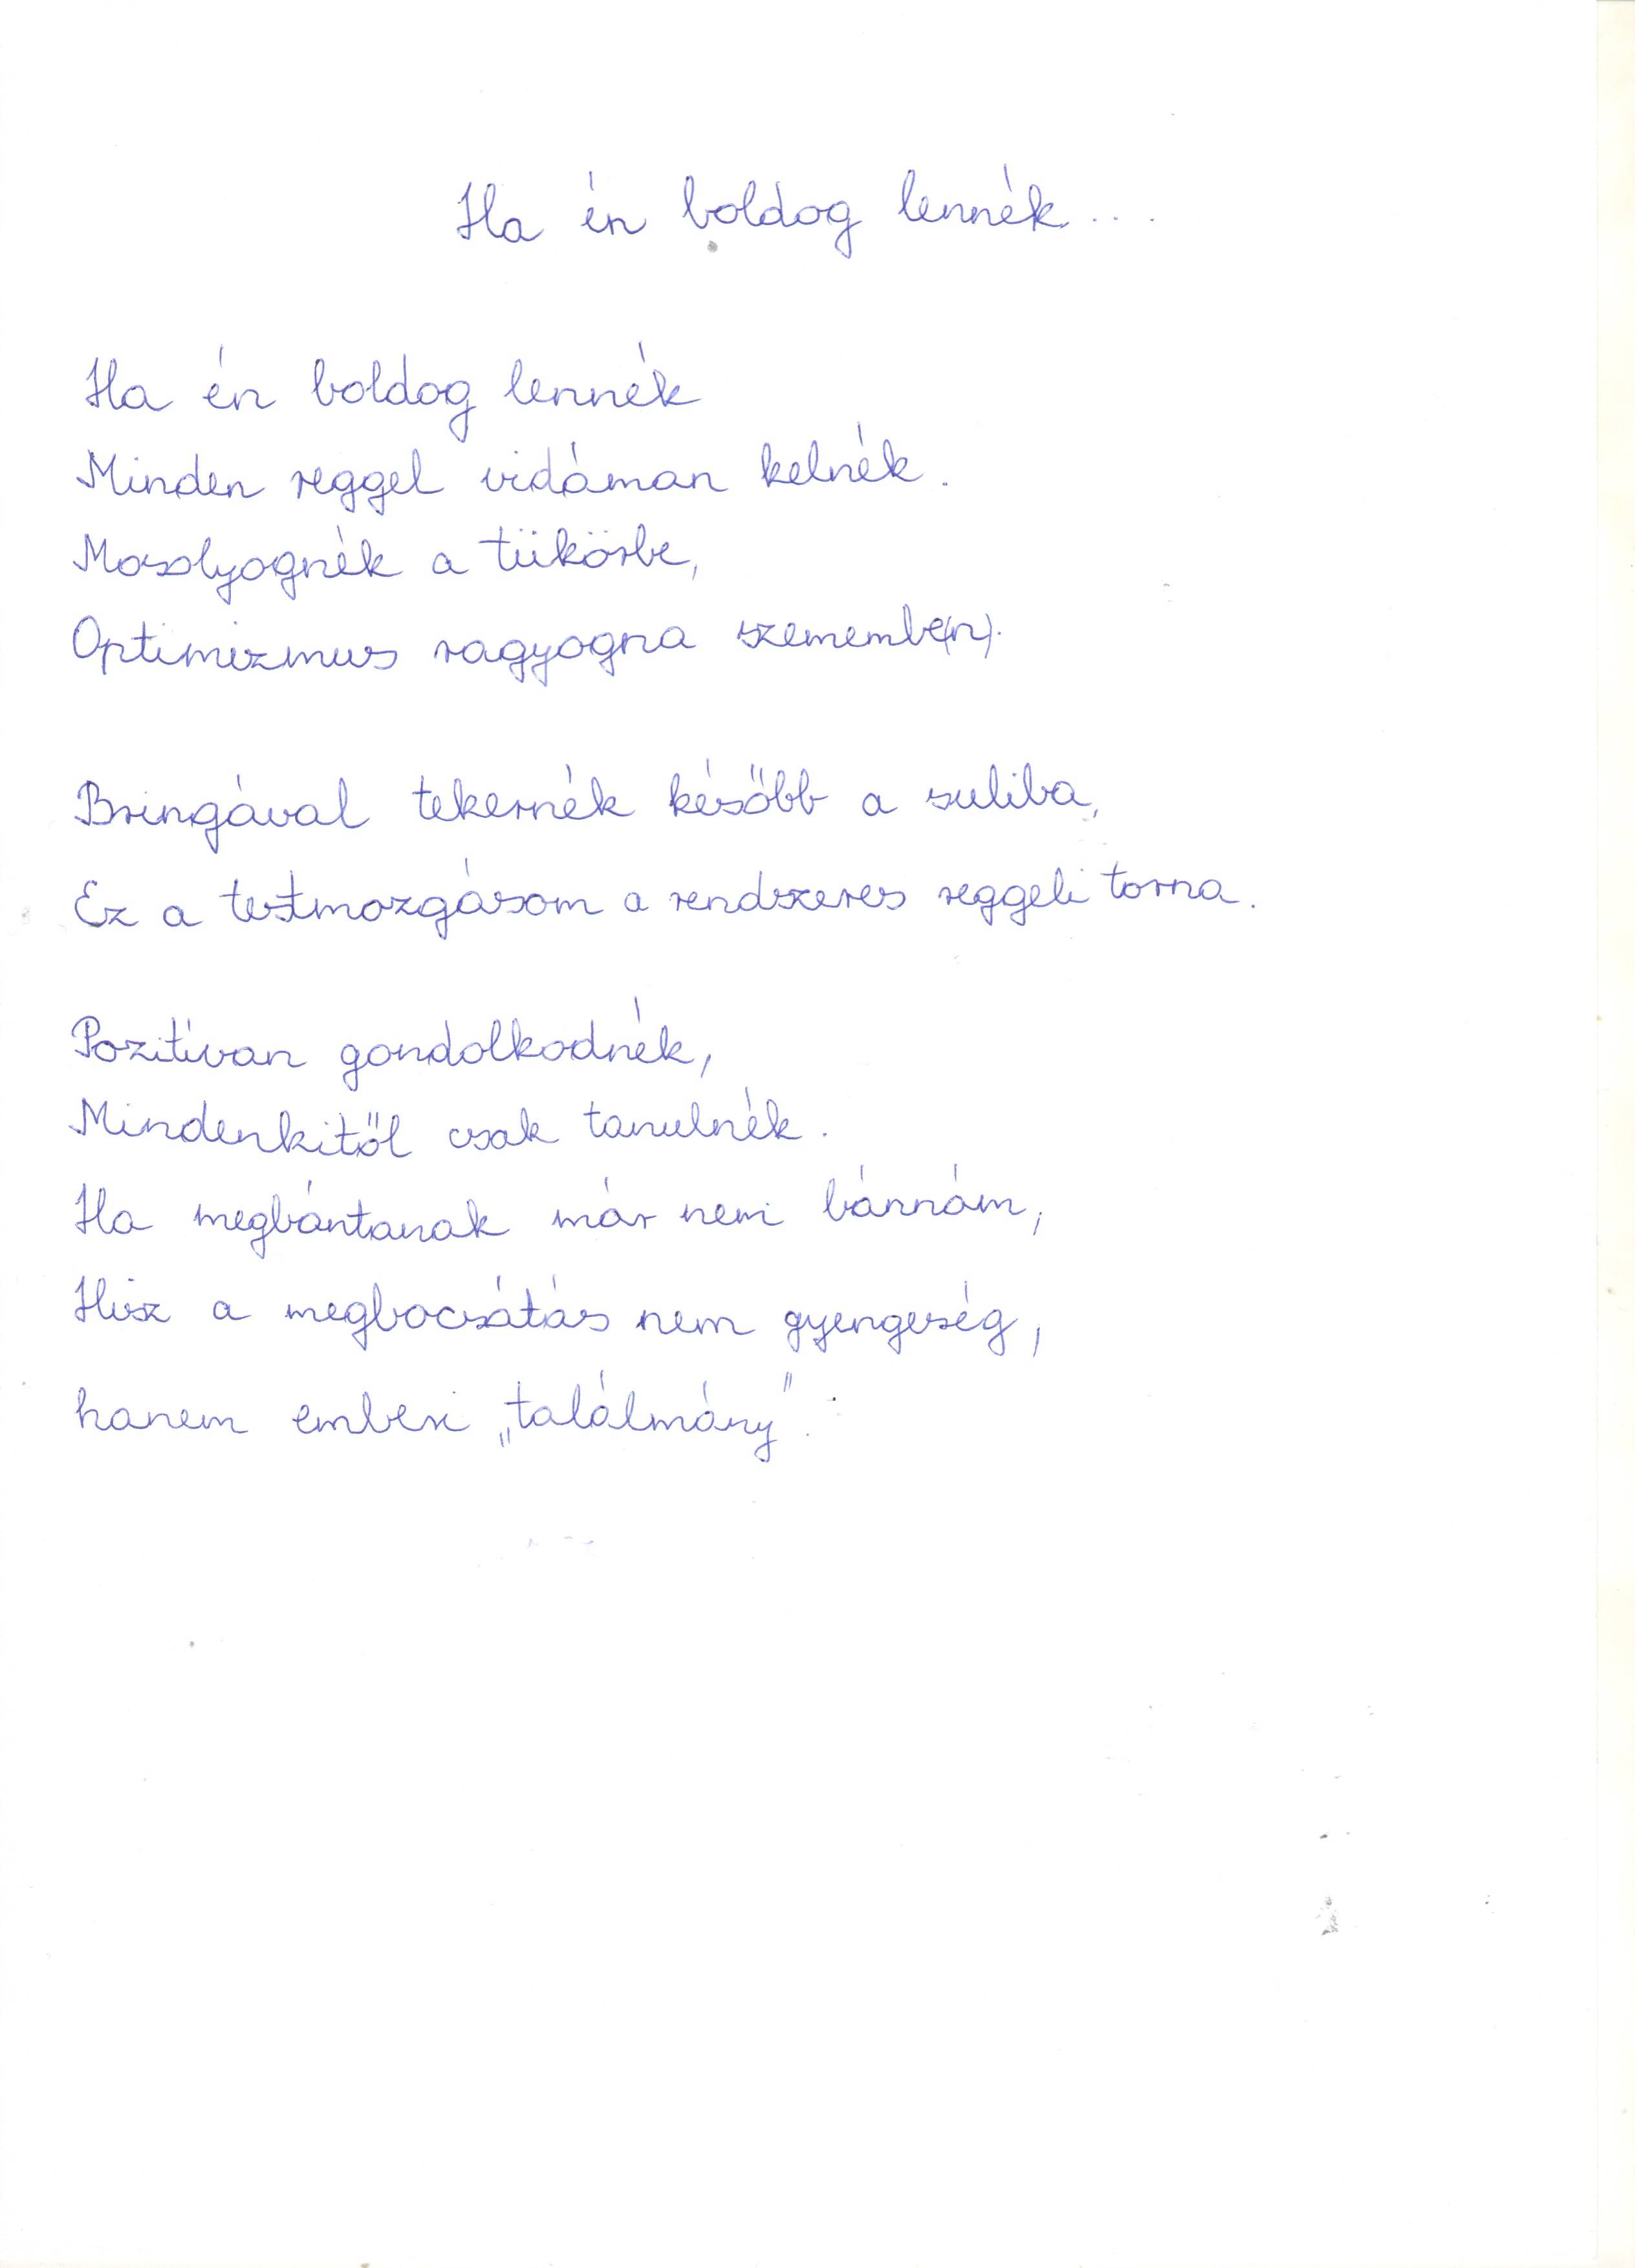 Ha én boldog lennék...
Ha én boldog lennék
Minden reggel vidáman kelnék.
Mosolyognék a tükörbe,
Optimizmus ragyogna szemembe(n).
Bringával tekernék később a suliba,
Ez a testmozgásom a rendszeres reggeli torna.
Pozitívan gondolkodnék,
Mindenkitől csak tanulnék.
Ha megbántanak már nem bánnám,
Hisz a megbocsátás nem gyengeség,
hanem emberi „találmány”.